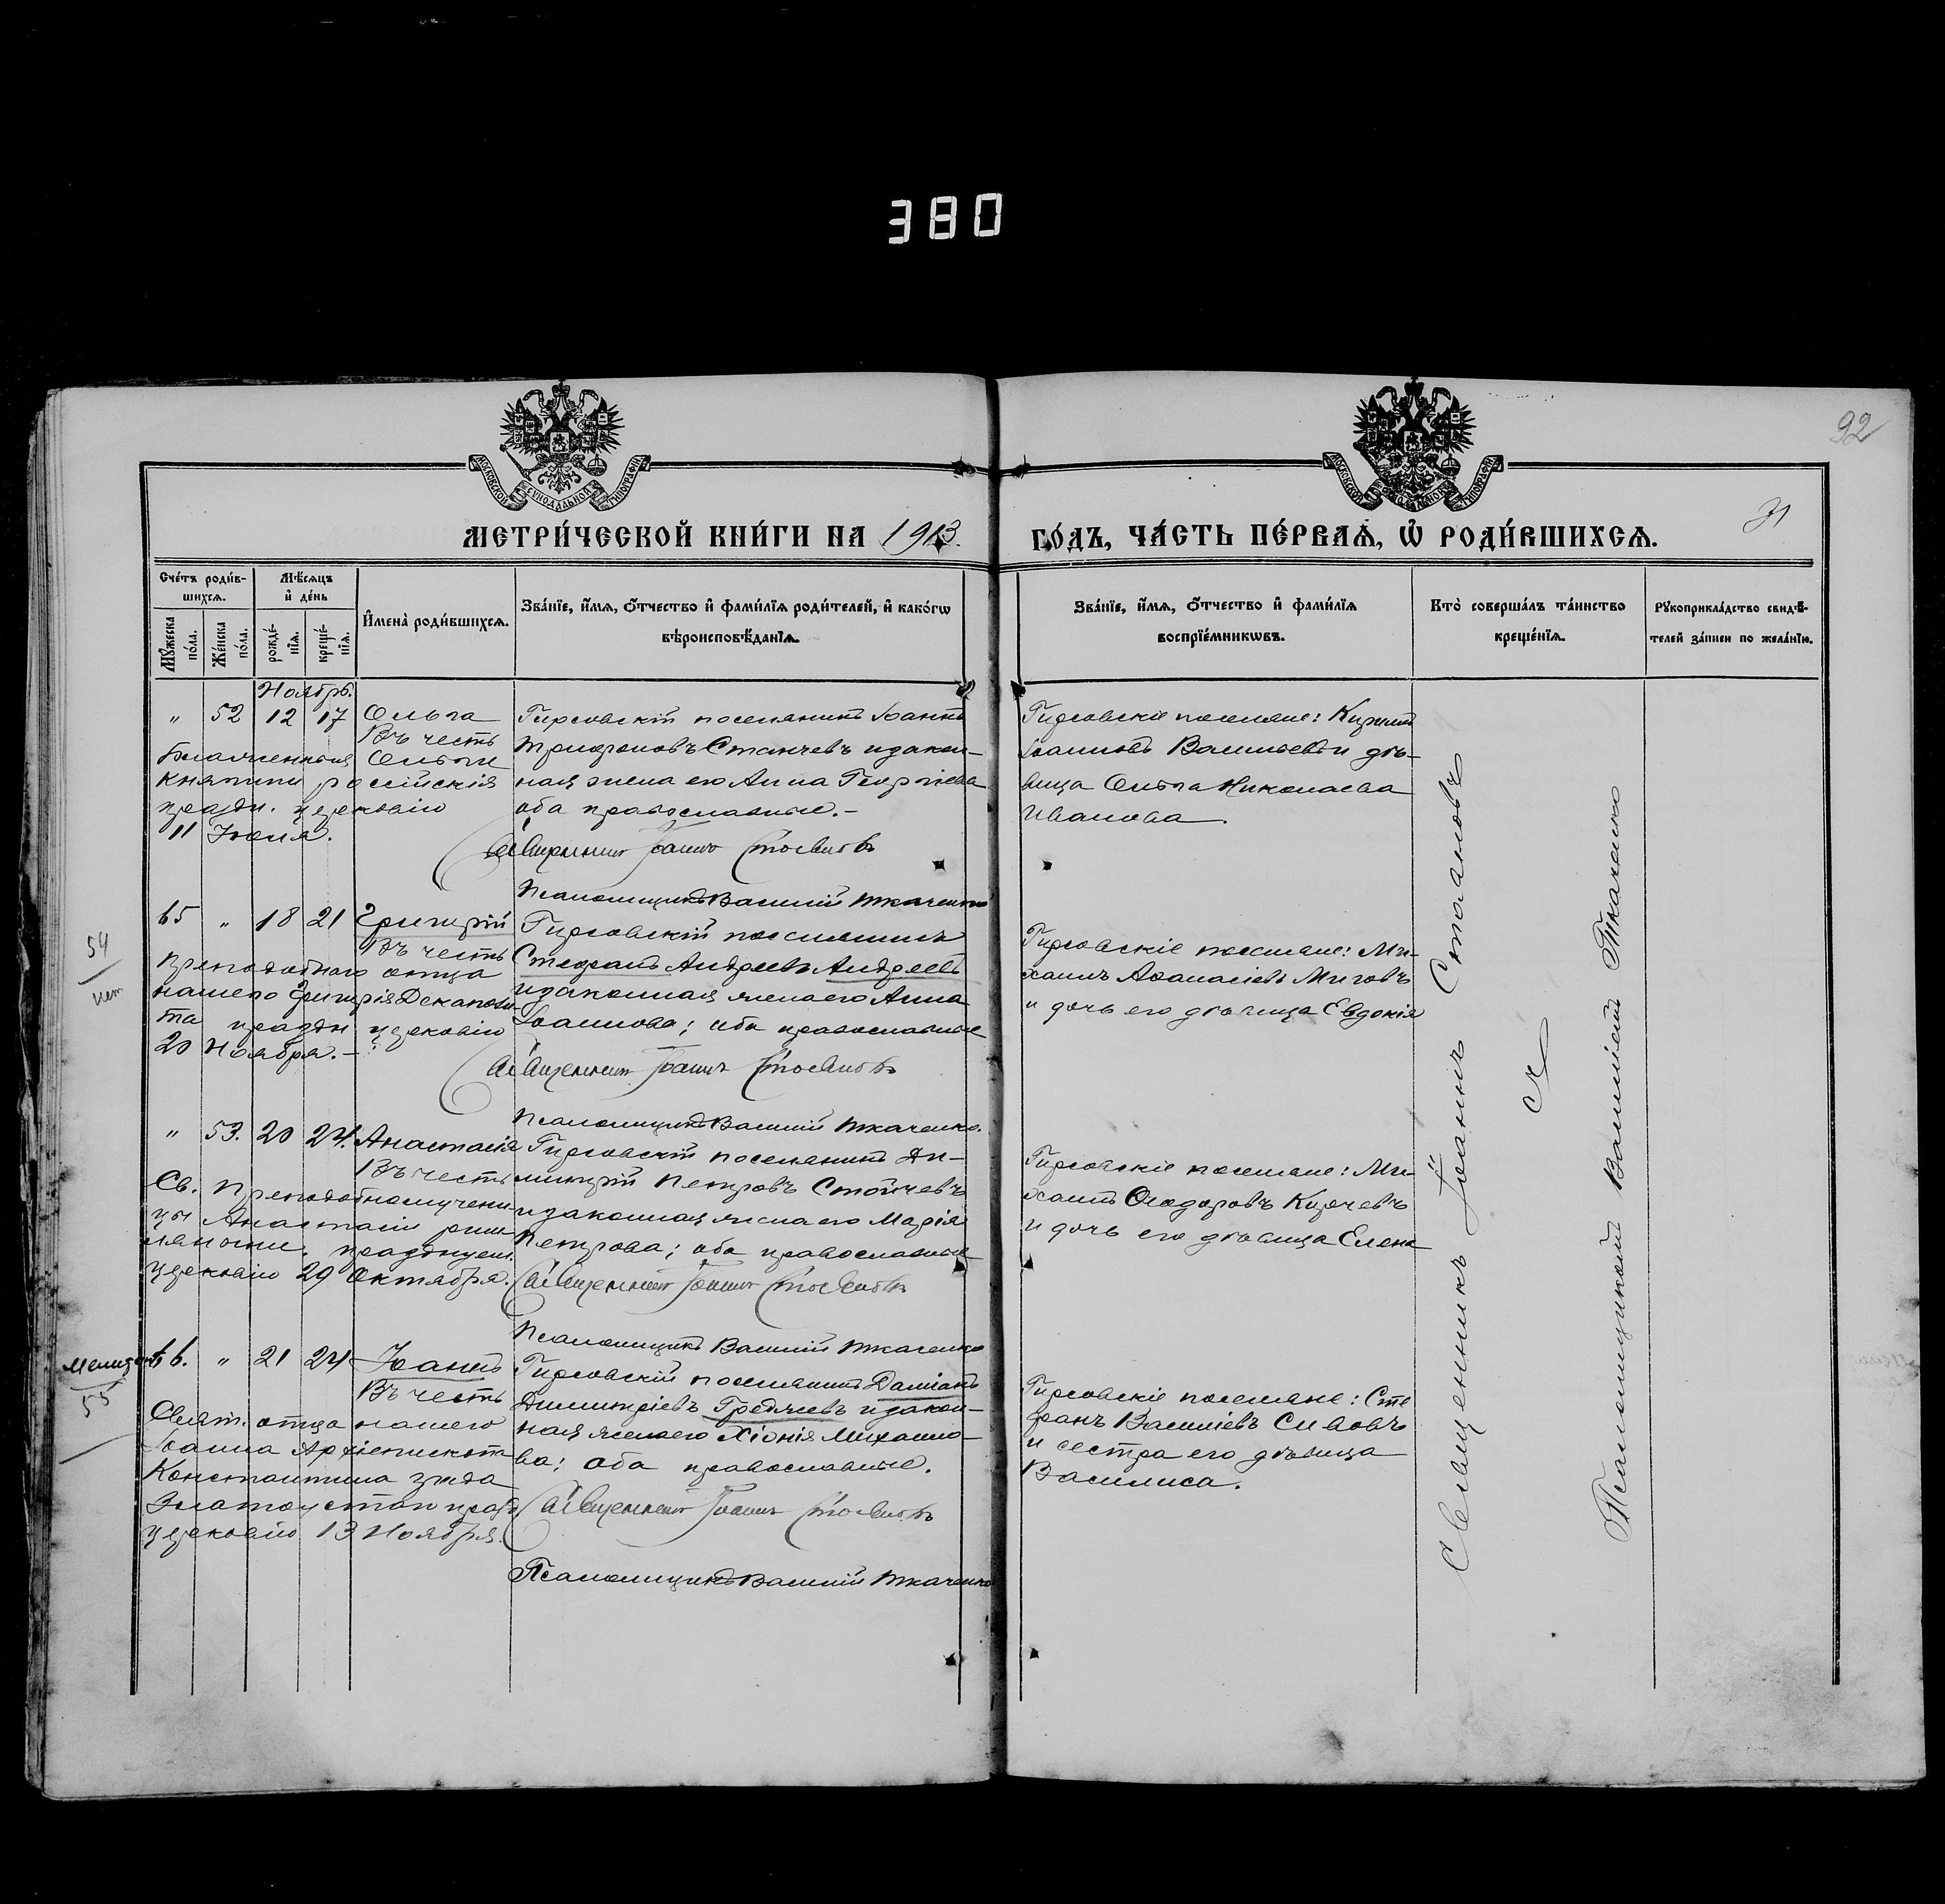 380
92
31
МОСКОВСКОЙ СΥНОДАЛЬНОЙ ТИПОГРАФІИ
МОСКОВСКОЙ СΥНОДАЛЬНОЙ ТИПОГРАФІИ
МЕТРИ́ЧЕСКОЙ КНИ́ГИ НА 1913.
ГО́ДЪ, ЧА́СТЬ ПЕ́РВАѦ, Ѿ РОДИ́ВШИХСѦ.
Сче́тъ роди́в-
шихсѧ.
Мѣ́сѧцъ
и де́нь
Мꙋ́жеска по́ла.
Же́нска по́ла.
рожде́-
нїѧ.
креще́-
нїѧ.
И҆мена̀ роди́вшихсѧ.
Зва́нїе, и҆́мѧ, ѻ҆́тчество и҆ фами́лїѧ роди́телей, и҆ како́гѡ
вѣроисповѣ́данїѧ.
Зва́нїе, и҆́мѧ, ѻ҆́тчество и҆ фами́лїѧ
воспрїе́мникѡвъ.
Кто̀ соверша́лъ та́инство
креще́нїѧ.
Рꙋкоприкла́дство свидѣ́-
телей за́писи по жела́нїю.
Ноябрь.
" 52 12 17 Ольга
Въ честь
Блаженныя Ольги
княгини російскія
праздн. церковію
11 Іюля.
Гирсовскій поселянинъ Іоаннъ
Трифоновъ Станчевъ и закон-
ная жена его Анна Георгіева
оба православные.-
Священникъ Іоаннъ Стоянов
Псаломщикъ Василій Ткаченко
Гирсовскіе поселяне: Кирилъ
Іоанновъ Васильевъ и дѣ-
вица Ольга Николаева
Иванова.
54
нет
65 " 18 21 Григорій
Въ честь
Преподобнаго отца
нашего Григорія Декаполи-
та праздн церковію
20 Ноября.-
Гирсовскій поселянинъ
Стефанъ Андреевъ Андреевъ
и законная жена его Анна
Іоаннова; оба православные
Священникъ Іоаннъ Стоянов
Псаломщикъ Василій Ткаченко.
Гирсовскіе поселяне: Ми-
хаилъ Афанасіевъ Миговъ
и дочь его дѣвица Евдокія
" 53. 20 24. Анастасія
Въ честь
Св. Преподобномучени-
цы Анастасіи рим-
ляныни. празднуем.
церковію 29 Октября.
Гирсовскій поселянинъ Ди-
митрій Петровъ Стойчевъ
и законная жена его Марія
Петрова; оба православные
Священникъ Іоаннъ Стоянов
Псаломщикъ Василій Ткаченко
Гирсовскіе поселяне: Ми-
хаилъ Ѳеодоровъ Кирчевъ
и дочь его дѣвица Елена
55
66. " 21 24 Іоаннъ
Въ честь
Свят. отца нашего
Іоанна Архіепископа
Константина града
Златоустаго празд
церковію 13 Ноября.
Гирсовскій поселянинъ Даміанъ
Димитріевъ Гредчевъ и закон-
ная жена его Хіонія Михаило-
ва; оба православные.
Священникъ Іоаннъ Стоянов
Псаломщикъ Василій Ткаченко
Гирсовскіе поселяне: Сте
фанъ Василіевъ Сивовъ
и сестра его дѣвица
Василиса.
Священникъ Іоаннъ Стояновъ
съ
Псаломщикомъ Василіемъ Ткаченко